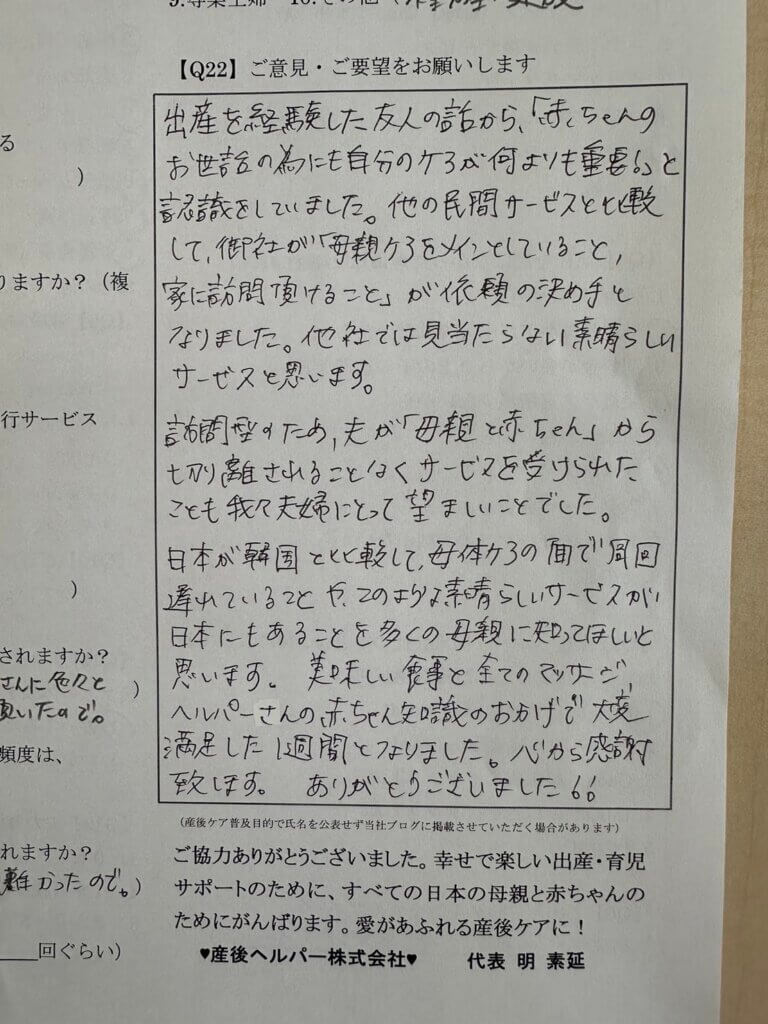 9.専業主婦 10.その他（
【Q22】ご意見・ご要望をお願いします
出産を経験した友人の話から、「赤ちゃんの
お世話の為にも自分のケアが何よりも重要!」と
認識をしていました。他の民間サービスと比較
して、御社が「母親ケアをメインとしていること,
家に訪問頂けること」が依頼の決め手と
なりました。他社では見当たらない素晴らしい
サービスと思います。
訪問型のため,夫が「母親と赤ちゃん」から
切り離されることなくサービスを受けられた
ことも我々夫婦にとって望ましいことでした。
日本が韓国と比較して,母体ケアの面で周回
遅れていることや、このような素晴らしいサービスが
日本にもあることを多くの母親に知ってほしいと
思います。 美味しい食事と全てのマッサージ,
ヘルパーさんの赤ちゃん知識のおかげで大変
満足した1週間となりました。心から感謝
致します。 ありがとうございました!!
（産後ケア普及目的で氏名を公表せず当社ブログに掲載させていただく場合があります）
ご協力ありがとうございました。幸せで楽しい出産・育児
サポートのために、すべての日本の母親と赤ちゃんの
ためにがんばります。愛があふれる産後ケアに！
♥産後ヘルパー株式会社♥ 代表 明 素延
る
）
りますか？（複
行サービス
）
されますか？
さんに色々と ）
頂いたので。
頻度は、
れますか？
難かったので。）
回ぐらい）